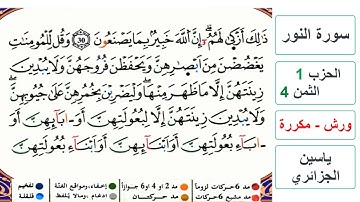 ذَٰلِكَ أَزْكَىٰ لَهُمُۥٓ إِنَّ اَ۬للَّهَ خَبِيرُۢ بِمَا يَصْنَعُونَ 30 وَقُل لِّلْمُومِنَٰتِ
يَغْضُضْنَ مِنَ اَبْصٰ۪رِهِنَّ وَيَحْفَظْنَ فُرُوجَهُنَّ وَلَا يُبْدِينَ
زِينَتَهُنَّ إِلَّا مَا ظَهَرَ مِنْهَا وَلْيَضْرِبْنَ بِخُمُرِهِنَّ عَلَىٰ جُيُوبِهِنَّ
وَلَا يُبْدِينَ زِينَتَهُنَّ إِلَّا لِبُعُولَتِهِنَّ أَوَ اٰبَآئِهِنَّ أَوَ
اٰبَآءِ بُعُولَتِهِنَّ أَوَ اَبْنَآئِهِنَّ أَوَ اَبْنَآءِ بُعُولَتِهِنَّ
سورة النور
الحزب 1
الثمن 4
ورش - مكررة
ياسين
الجزائري
مد 6 حركات لزوماً
مد 2 أو 4 أو 6 جوازاً
إخفاء، ومواقع الغنّة
تفخيم
مد مشبع 6 حركات
مد حركتان
إدغام، وما لا يُلفظ
قلقلة